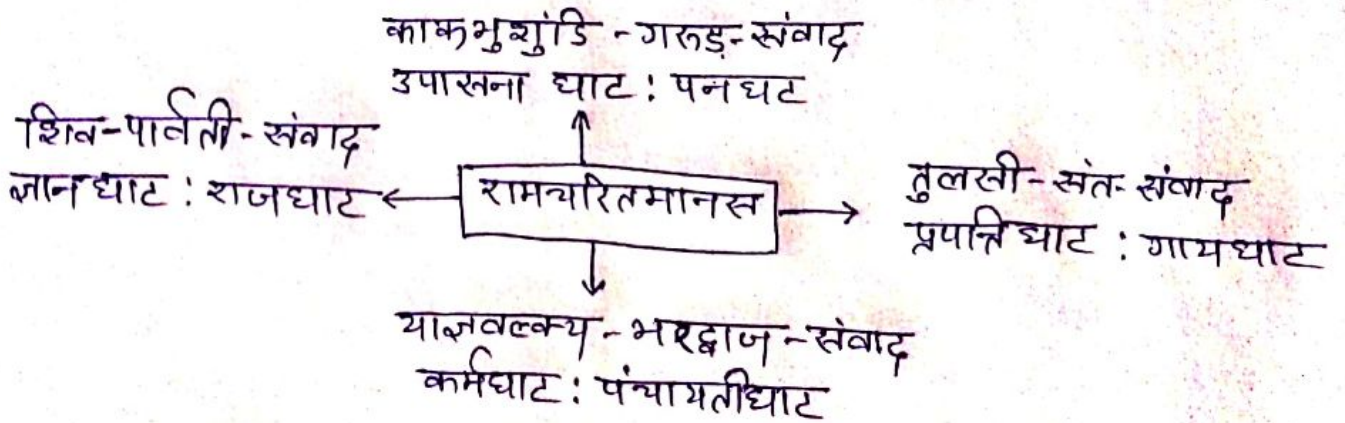 काकभुशुंडि - गरुड़ - संवाद
उपासना घाट : पनघट
शिव-पार्वती - संवाद
ज्ञान घाट : राजघाट
रामचरितमानस
तुलसी - संत - संवाद
प्रपत्ति घाट : गायघाट
याज्ञवल्क्य - भरद्वाज - संवाद
कर्मघाट : पंचायतीघाट